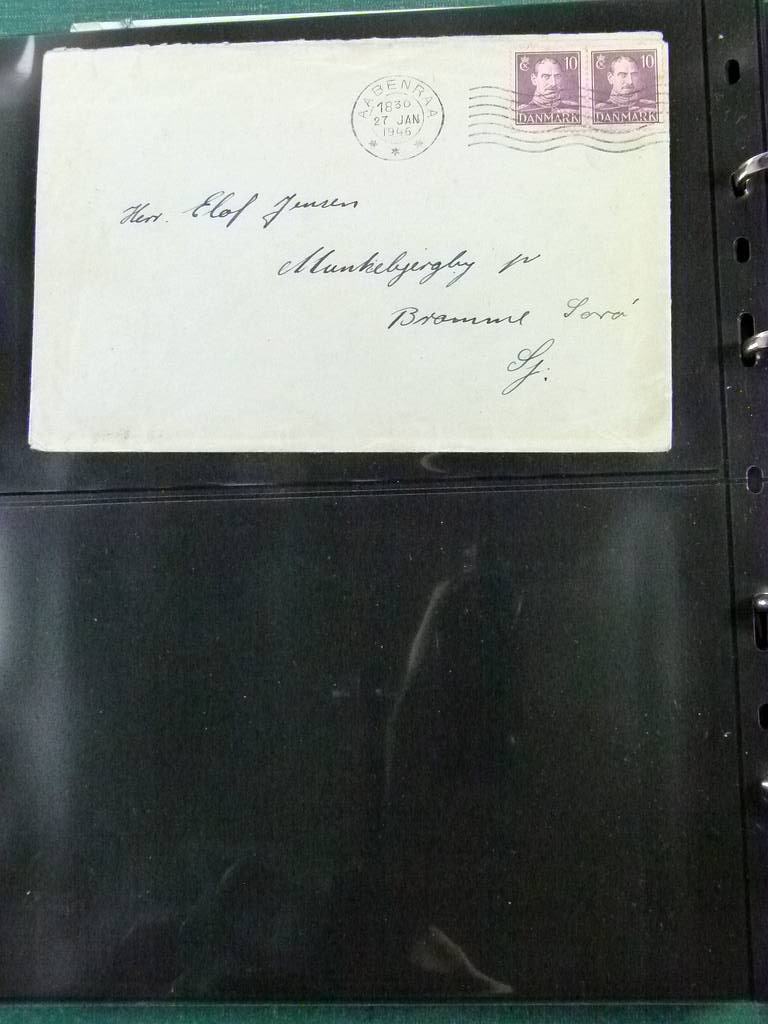 AABENRAA
1830
27 JAN
1946
10 10
DANMARK DANMARK
Herr. Elof Jensen
Munkebjergby pr
Bromme Sorø
Sj.